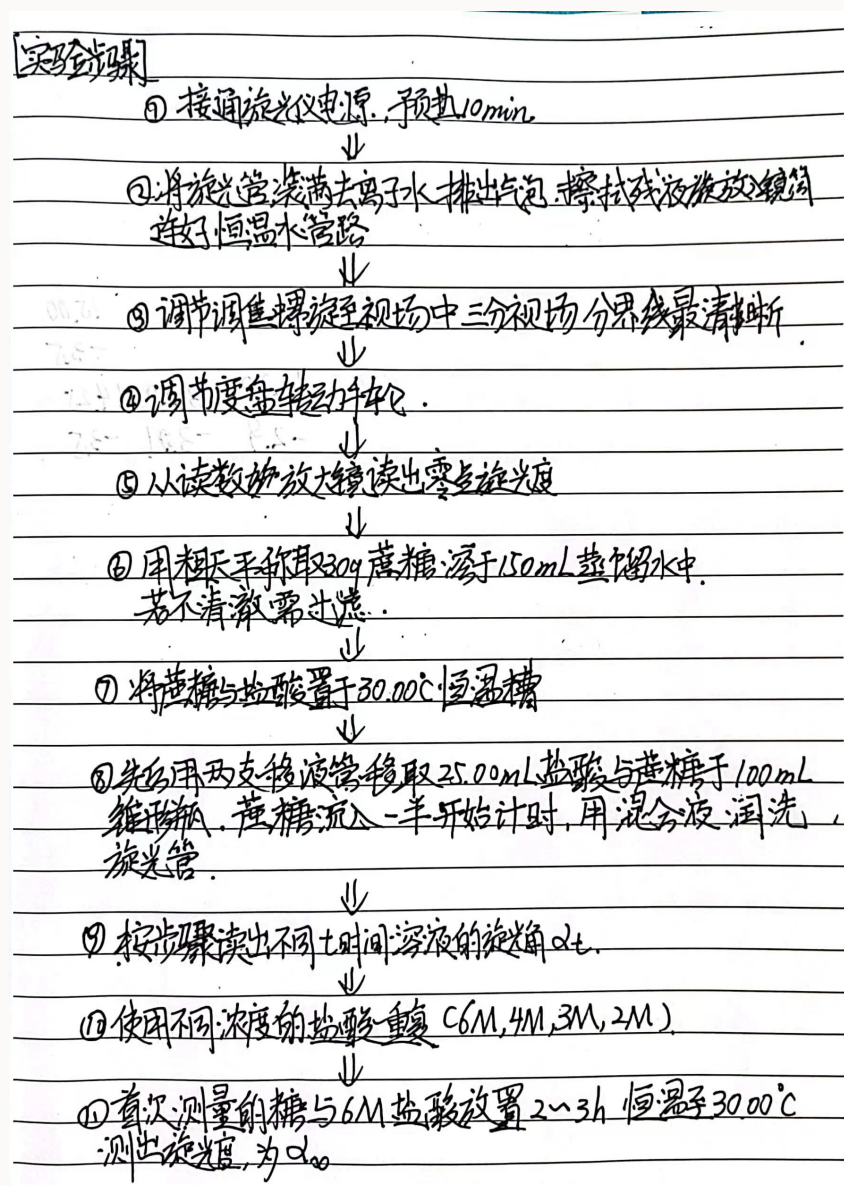 [实验步骤]
① 接通旋光仪电源,预热10min.
⇓
②将旋光管装满去离子水 排出气泡.擦拭残液后放入镜筒
连好恒温水管路
⇓
③调节调焦螺旋至视场中三分视场分界线最清晰.
⇓
④调节度盘转动手轮.
⇓
⑤从读数放大镜读出零点旋光度
⇓
⑥用粗天平称取30g蔗糖溶于150mL蒸馏水中.
若不清澈需过滤.
⇓
⑦将蔗糖与盐酸置于30.00℃恒温槽
⇓
⑧先后用两支移液管移取25.00mL盐酸与蔗糖于100mL
锥形瓶.蔗糖流入一半开始计时,用混合液润洗
旋光管.
⇓
⑨按步骤读出不同t时间溶液的旋光角αt.
⇓
⑩使用不同浓度的盐酸重复(6M,4M,3M,2M)
⇓
⑪首次测量的糖与6M盐酸放置2~3h 恒温至30.00℃
测出旋光度,为α∞